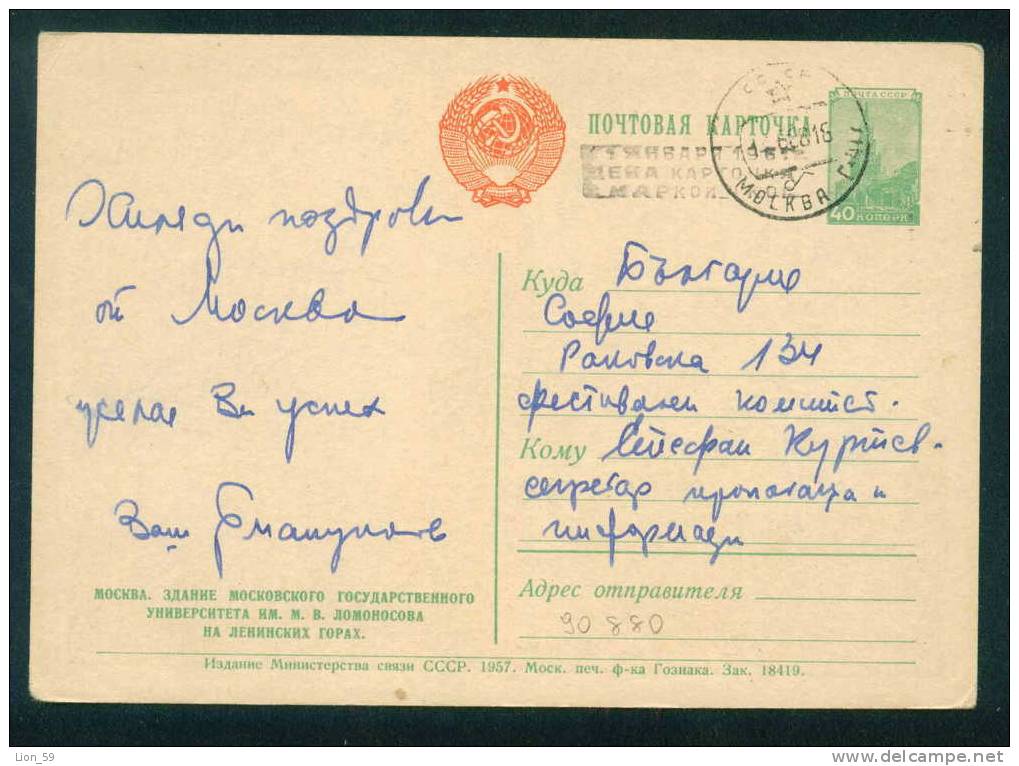 ПОЧТА СССР
ПОЧТОВАЯ КАРТОЧКА
ЦЕНА КАРТОЧКИ
МАРКОЙ
МОСКВА
40 КОПЕЕК
Хиляди поздрави
от Москва
желая Ви успех
Ваш
Куда България
София
Раковска 134
фестивален комитет.
Кому Стефан
секретар пропаганда и
информация
Адрес отправителя
90 880
МОСКВА. ЗДАНИЕ МОСКОВСКОГО ГОСУДАРСТВЕННОГО
УНИВЕРСИТЕТА ИМ. М. В. ЛОМОНОСОВА
НА ЛЕНИНСКИХ ГОРАХ.
Издание Министерства связи СССР. 1957. Моск. печ. ф-ка Гознака. Зак. 18419.
Lion_59
http://www.delcampe.net